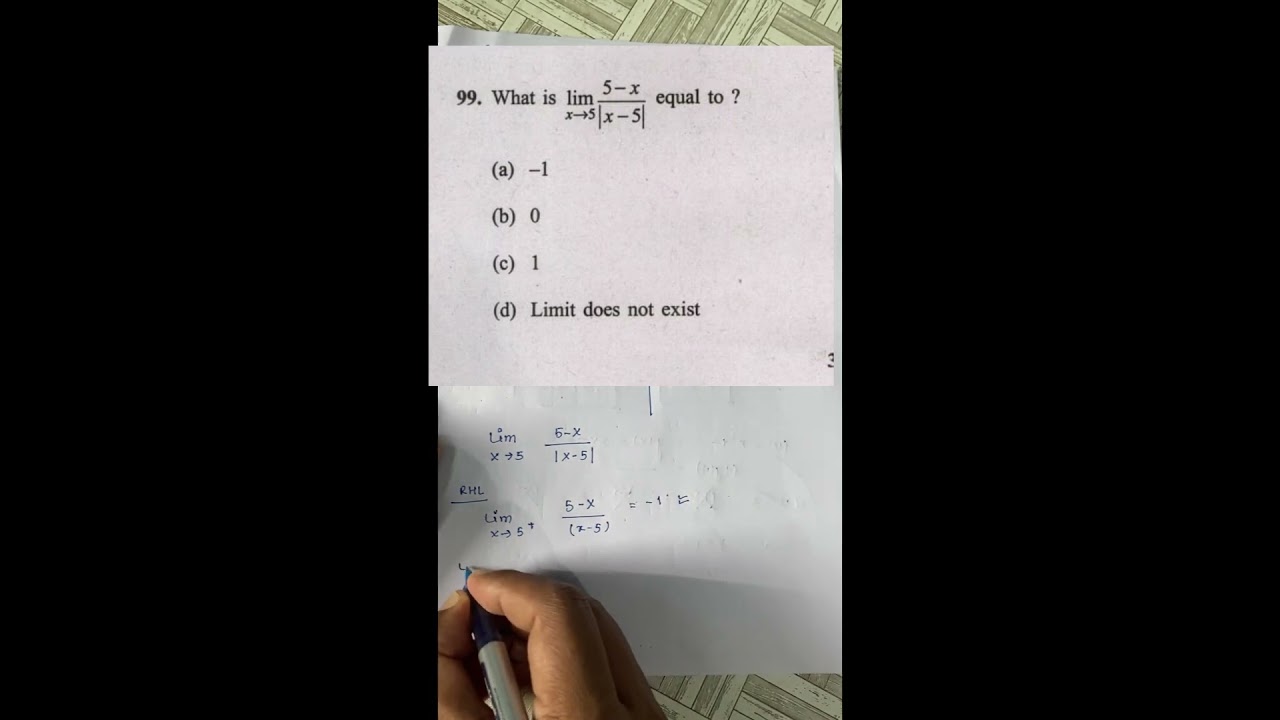 99. What is lim x→5 5−x / |x−5| equal to ?
(a) −1
(b) 0
(c) 1
(d) Limit does not exist
3
Lim x→5 5-x / |x-5|
RHL
Lim x→5⁺ 5-x / (x-5) = -1